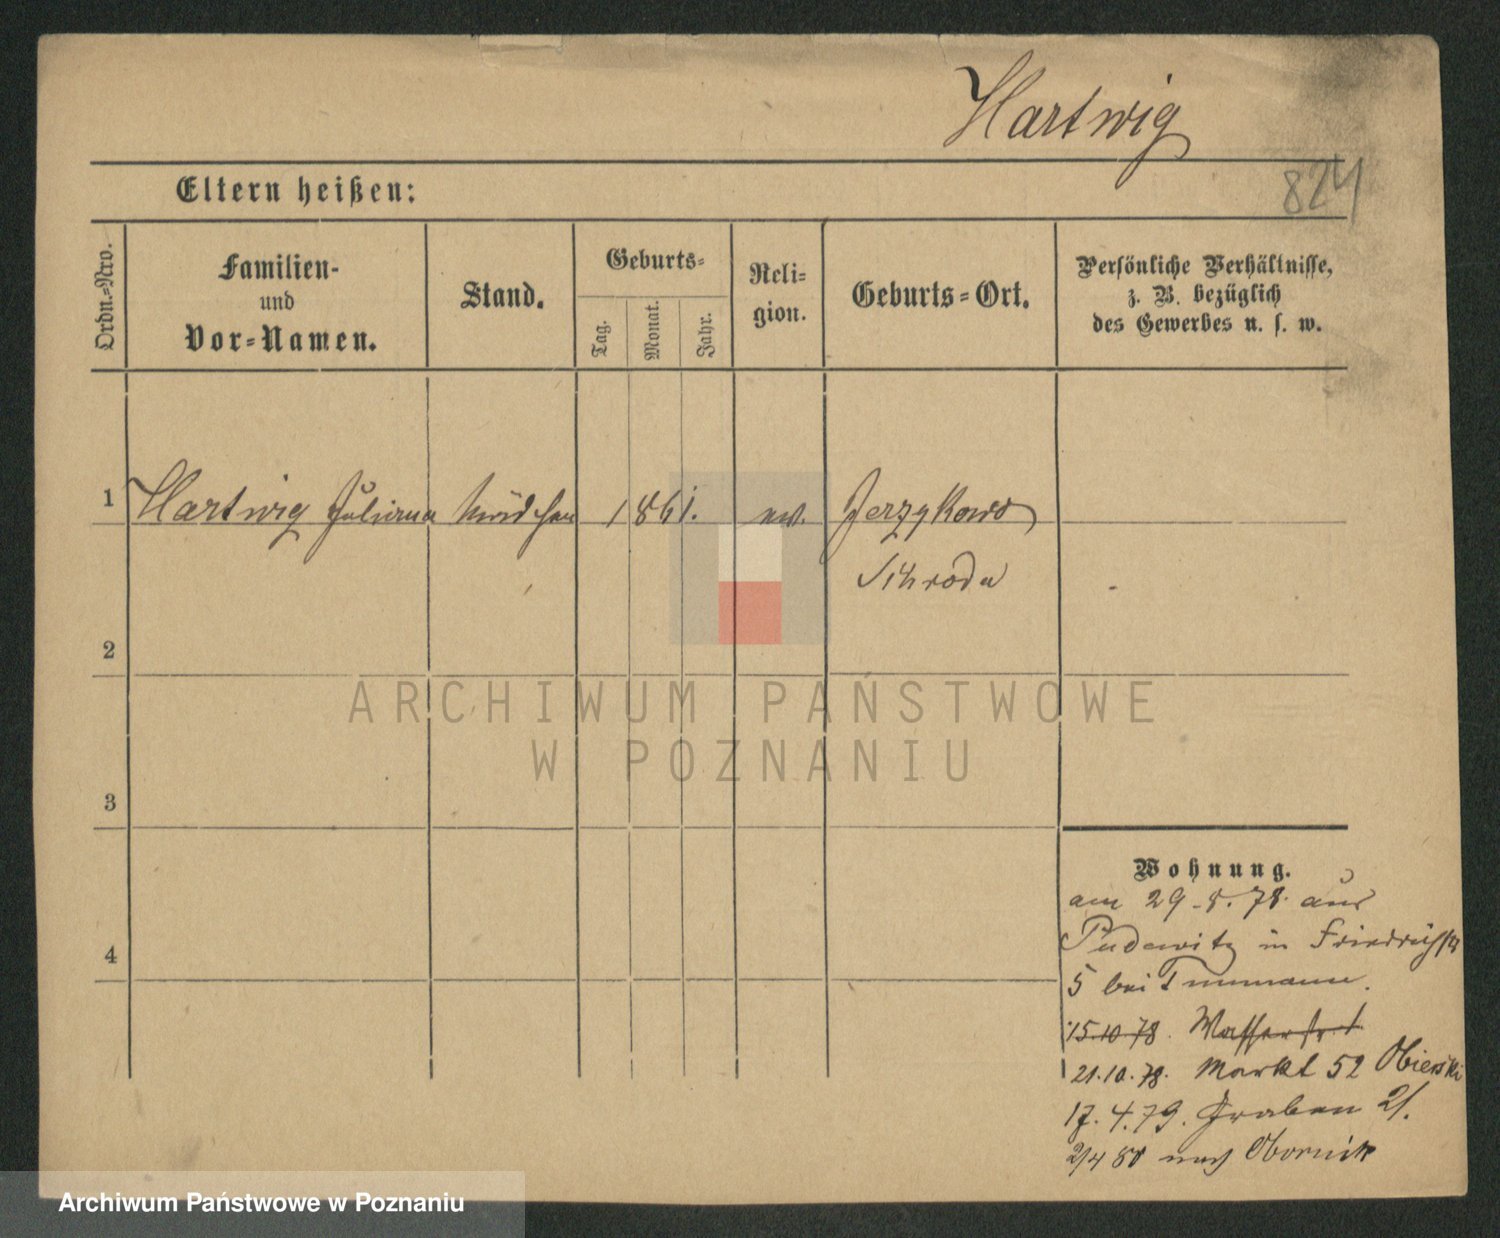 Hartwig
824
Eltern heißen:
Ordn.=Nro.
Familien-
und
Vor=Namen.
Stand.
Geburts=
Tag.
Monat.
Jahr.
Reli=
gion.
Geburts=Ort.
Persönliche Verhältnisse,
z. B. bezüglich
des Gewerbes u. s. w.
1 Hartwig Juliana Mädchen 1861. ev. Jerzykowo
Schroda
2
3
4
Wohnung.
am 29.8.78. aus
Pudewitz in Friedrichstr
5 bei
15.10.78. Wasserstr. 1
21.10.78. Markt 52 Obierski
17.4.79. Graben 21.
2/4 80 nach Obornik
ARCHIWUM PAŃSTWOWE
W POZNANIU
Archiwum Państwowe w Poznaniu